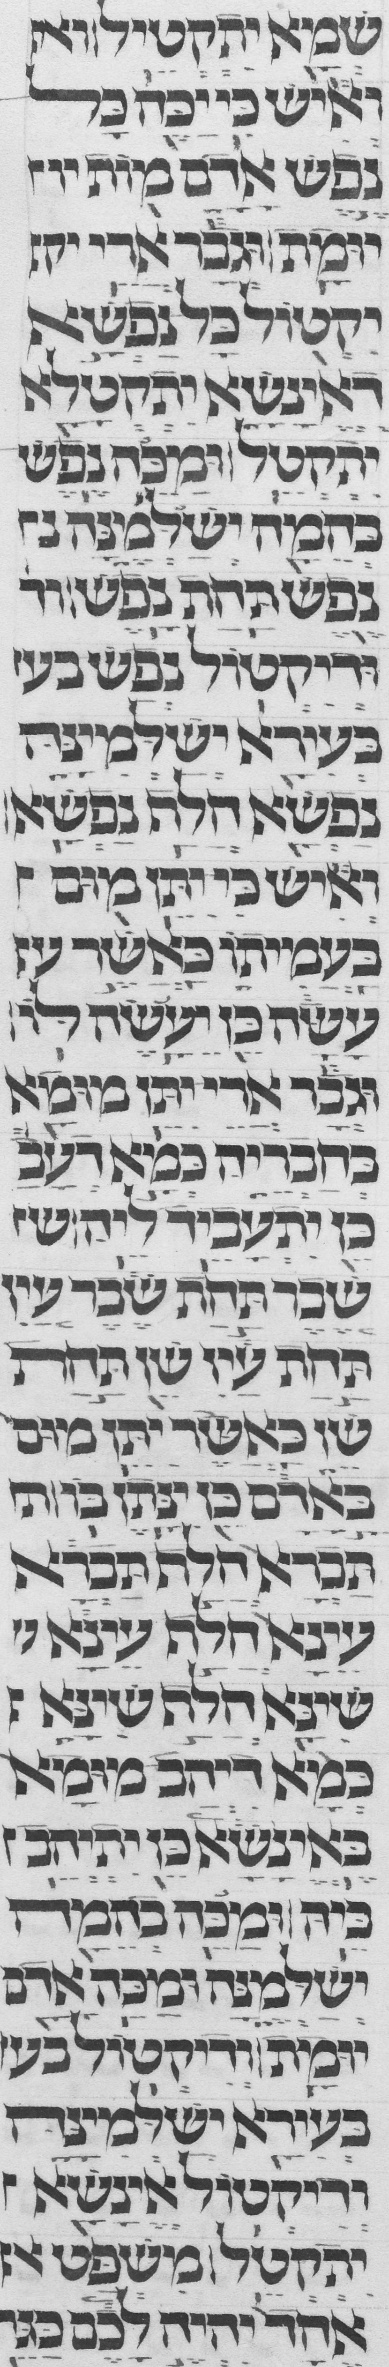 שמא יתקטיל וא
ואיש כי יכה כל
נפש אדם מות יו
יומת וגבר ארי יק
יקטול כל נפשא
דאינשא יתקטלא
יתקטל ומכה נפש
בהמה ישלמנה נ
נפש תחת נפש וד
ודיקטול נפש בעי
בעירא ישלמינה
נפשא חלת נפשא
ואיש כי יתן מום
בעמיתו כאשר ע
עשה כן יעשה לו
וגבר ארי יתן מומא
בחבריה כמא דעב
כן יתעביד ליה ש
שבר תחת שבר עין
תחת עין שן תחת
שן כאשר יתן מום
באדם כן ינתן בו ת
תברא חלת תברא
עינא חלת עינא ש
שינא חלת שינא
כמא דיהב מומא
באינשא כן יתיהב
ביה ומכה בהמה
ישלמנה ומכה אדם
יומת ודיקטול בעי
בעירא ישלמינה
ודיקטול אינשא
יתקטל משפט א
אחד יהיה לכם כגר